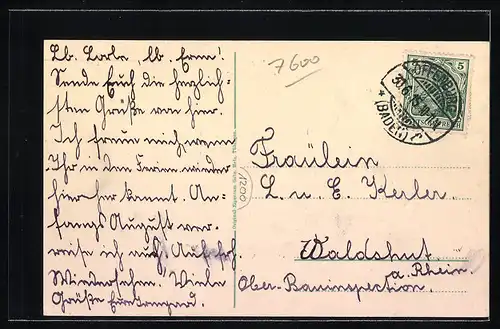 Lb. Lorle, lb. Erna!
Sende Euch die herzlich-
sten Grüße von hier.
Ich freue mich wenn
Ihr in den Ferien wieder
hier her kommt. An-
fangs August ver-
reise ich auch. Auf
Wiedersehen. Viele
Grüße
7600
1200
OFFENBURG
(BADEN)
5
Fräulein
L. u. E. Kerler.
Waldshut
a. Rhein.
Ober-Bauinspection.